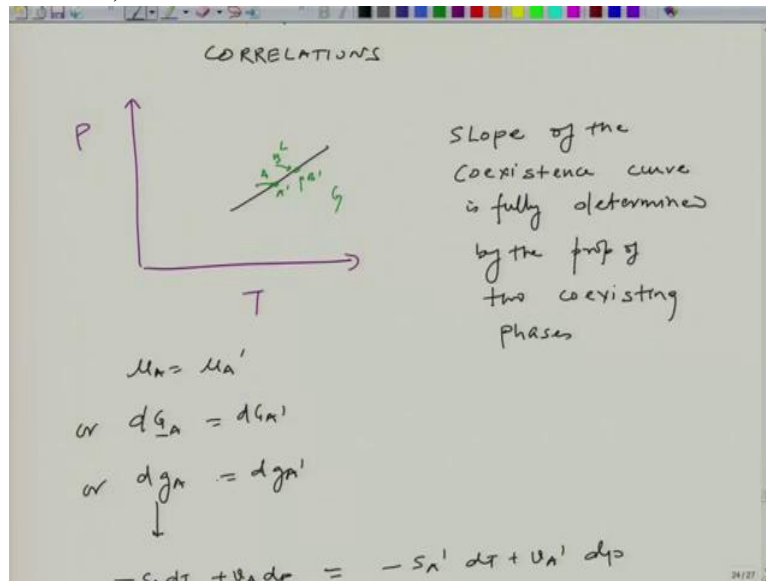 CORRELATIONS
P
L
B
A
A'
B'
G
T
Slope of the
Coexistence curve
is fully determined
by the prop of
two coexisting
phases
μA = μA'
or dGA = dGA'
or dgA = dgA'
- SA dT + vA dp = - SA' dT + vA' dp
24/27